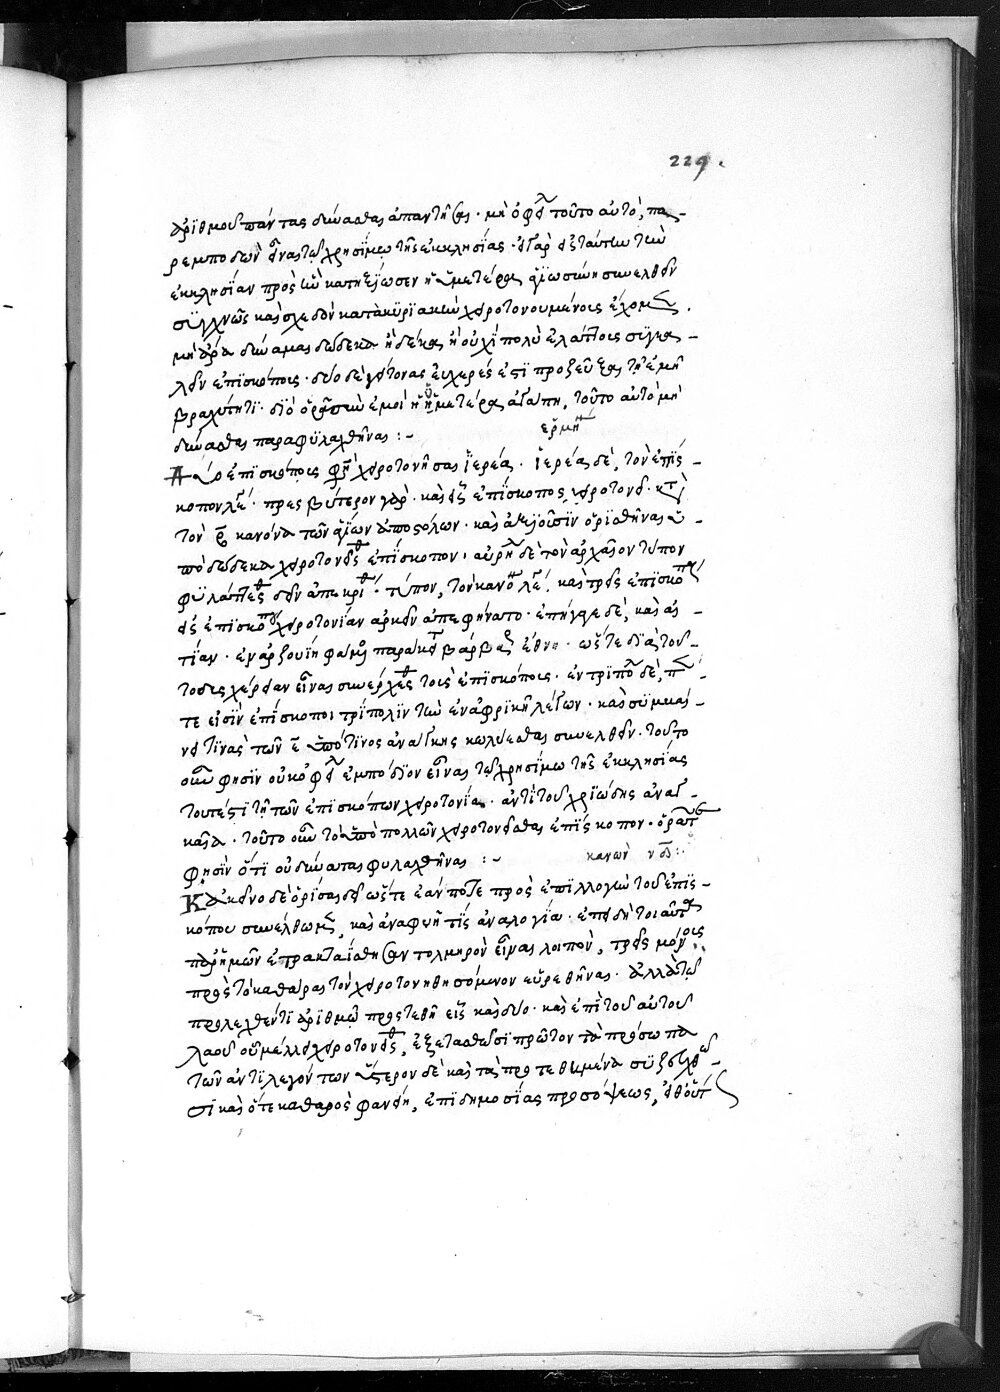 229.
ἀριθμοῦ πάντας δύνασθαι ἀπαντῆσαι · μὴ ὀφεί τοῦτο αὐτὸ, πα-
ρεμποδὼν εἶναι τῷ χρησίμῳ τῆς ἐκκλησίας · εἰ γὰρ εἰς ταύτην τὴν
ἐκκλησίαν πρὸς ἣν κατηξίωσεν ἡ ὑμετέρα ἁγιωσύνη συνελθεῖν
συχνῶς καὶ σχεδὸν κατὰ κυριακὴν χειροτονουμένους ἔχομεν ·
μὴ ἄρα δυνάμαι δώδεκα ἢ δέκα ἢ οὐχὶ πολὺ ἐλάττοις συγκα-
λεῖν ἐπισκόποις · δύο δὲ γείτονας εὐχερές ἐστι προζεῦξαι τῇ ἐμῇ
βραχύτητι · διὸ ὁρᾷ σὺν ἐμοὶ ἡ ὑμετέρα ἀγάπη, τοῦτο αὐτὸ μὴ
δύνασθαι παραφυλαχθῆναι :-
ἑρμη
Δύο ἐπισκόποις χειροτονῆσαι ἱερέα · ἱερέα δὲ, τὸν ἐπίς-
κοπον λέ · πρεσβύτερον γὰρ · καὶ εἷς ἐπίσκοπος χειροτονεῖ · κατὰ
τὸν κανόνα τῶν ἁγίων ἀποστόλων · καὶ ἀξιοῦσιν ὁρισθῆναι ὑ-
πὸ δώδεκα χειροτονεῖσθ ἐπίσκοπον · αὐρή δὲ τὸν ἀρχαῖον τύπον
φυλάττεσθ δεῖν ἀπεκρίθ · τύπον, τὸν κανό λέ, καὶ τρεῖς ἐπισκόπ
εἰς ἐπισκόπου χειροτονίαν ἀρκεῖν ἀπεφήνατο · ἐπήγαγε δὲ, καὶ αἰ-
τίαν · ἐν ἀρζουΐη φαμὲν παρακεῖτ βάρβαρ ἔθνη · ὥστε διὰ τοῦ-
το δυσχέρειαν εἶναι συνέρχεσθ τοῖς ἐπισκόποις · ἐν τριπό δὲ, πέν-
τε εἰσὶν ἐπίσκοποι τρίπολιν τὴν ἐν ἀφρικῇ λέγων · καὶ συμβαί-
νει τινὰς τῶν ε ὑπό τινος ἀνάγκης κωλύεσθαι συνελθεῖν · τοῦτο
οὖν φησὶν οὐκ ὀφεί ἐμπόδιον εἶναι τῷ χρησίμῳ τῆς ἐκκλησίας
τουτέστι τῇ τῶν ἐπισκόπων χειροτονία · ἀντὶ τοῦ χρειώδης ἀναγ-
καία · τοῦτο οὖν τὸ ὑπὸ πολλῶν χειροτονεῖσθαι ἐπίσκοπον · ὁρᾶτε
φησὶν ὅτι οὐ δύναται φυλαχθῆναι :- κανὼν νθ :
Κἀκεῖνο δὲ ὁρίσαι δεῖ ὥστε ἐάν ποτε πρὸς ἐπιλλογὴν τοῦ ἐπισ-
κόπου συνέλθωμεν, καὶ ἀναφυῇ τίς ἀναλογία · ἐπειδὴ τοιαῦτα
παρ' ἡμῶν ἐτρακταΐσθησαν τολμηρὸν εἶναι λοιπόν, τρεῖς μόνοις
πρὸς τὸ καθάραι τὸν χειροτονηθησόμενον εὑρεθῆναι · ἀλλὰ τῷ
προλεχθέντι ἀριθμῷ προστεθῇ εἷς καὶ δύο · καὶ ἐπὶ τοῦ αὐτοῦ
λαοῦ οὗ μέλλει χειροτονεῖσθ, ἐξετασθῶσι πρῶτον τὰ πρόσωπα
τῶν ἀντιλεγόντων ὕστερον δὲ καὶ τὰ προτεθημένα συζευχθῶ-
σι καὶ ὅτε καθαρὸς φανείη, ἐπὶ δημοσίας προσόψεως, εἶθ' οὕτ